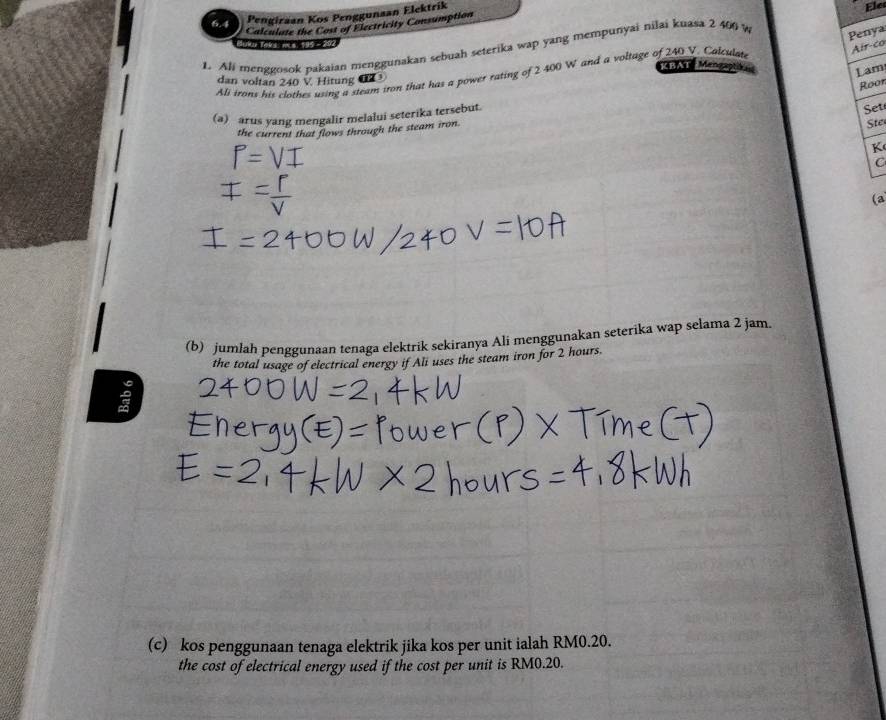 6.4 Pengiraan Kos Penggunaan Elektrik
Calculate the Cost of Electricity Consumption
Buku Teks: m.s. 195 – 202
1. Ali menggosok pakaian menggunakan sebuah seterika wap yang mempunyai nilai kuasa 2 400 W
dan voltan 240 V. Hitung TP3
Ali irons his clothes using a steam iron that has a power rating of 2 400 W and a voltage of 240 V. Calculate
KBAT Mengaplikasi
(a) arus yang mengalir melalui seterika tersebut.
the current that flows through the steam iron.
P = VI
I = P/V
I = 2400W/240V = 10A
(b) jumlah penggunaan tenaga elektrik sekiranya Ali menggunakan seterika wap selama 2 jam.
the total usage of electrical energy if Ali uses the steam iron for 2 hours.
2400W = 2,4kW
Energy(E) = Power(P) × Time(T)
E = 2,4kW × 2 hours = 4,8kWh
(c) kos penggunaan tenaga elektrik jika kos per unit ialah RM0.20.
the cost of electrical energy used if the cost per unit is RM0.20.
Bab 6
Ele
Penya
Air-co
Lam
Roor
Set
Ste
K
C
(a